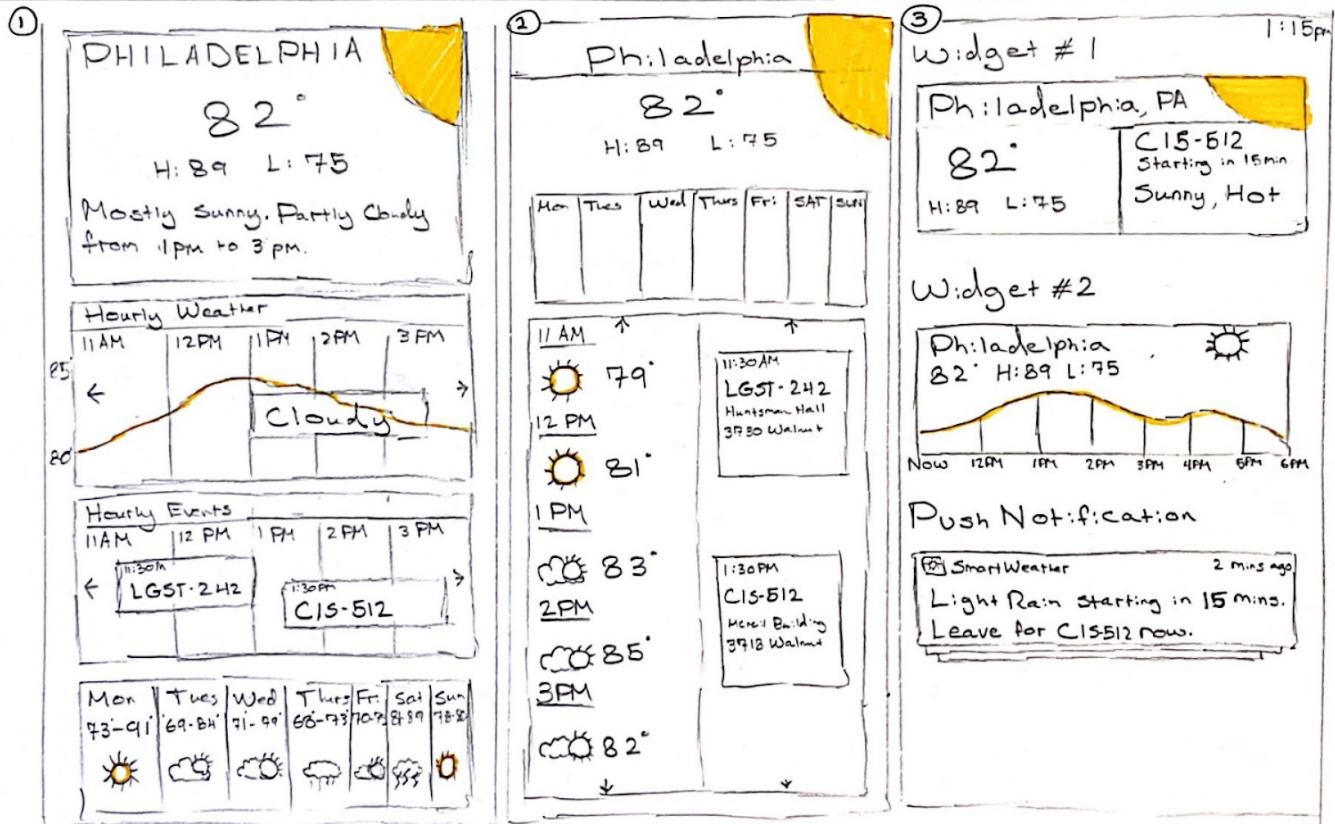 1
PHILADELPHIA
82°
H:89 L:75
Mostly Sunny. Partly Cloudy
from 1pm to 3pm.
Hourly Weather
11 AM 12 PM 1 PM 2 PM 3 PM
85°
Cloudy
80°
Hourly Events
11 AM 12 PM 1 PM 2 PM 3 PM
LGST-242
1:30PM
CIS-512
Mon Tues Wed Thurs Fri Sat Sun
73-91° 69-84° 71-99° 68-73°
2
Philadelphia
82°
H:89 L:75
Mon Tues Wed Thurs Fri SAT SUN
11 AM
79°
12 PM
81°
1 PM
83°
2PM
85°
3PM
82°
11:30AM
LGST-242
Huntsman Hall
3730 Walnut
1:30PM
CIS-512
Building
3718 Walnut
3
1:15pm
Widget #1
Philadelphia, PA
82°
H:89 L:75
CIS-512
Starting in 15min.
Sunny, Hot
Widget #2
Philadelphia
82° H:89 L:75
Now 12PM 1PM 2PM 3PM 4PM 5PM 6PM
Push Notification
SmartWeather 2 mins ago
Light Rain starting in 15 mins.
Leave for CIS-512 now.